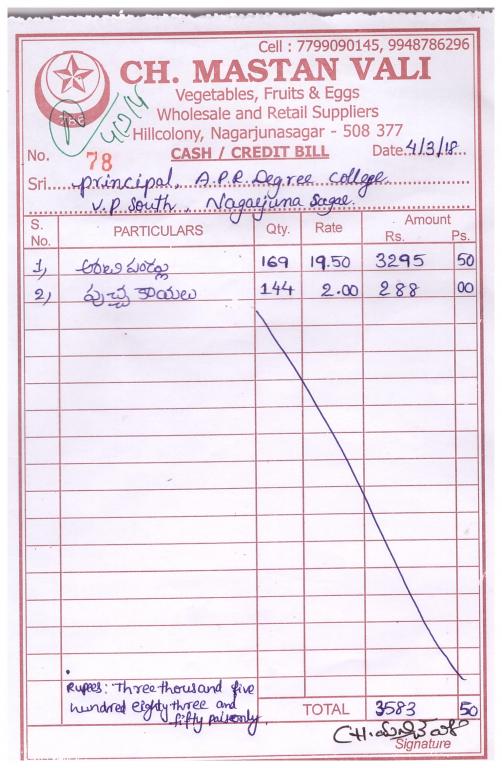 Cell : 7799090145, 9948786296
CH. MASTAN VALI
Vegetables, Fruits & Eggs
Wholesale and Retail Suppliers
Hillcolony, Nagarjunasagar - 508 377
No. 78 CASH / CREDIT BILL Date 4/3/18
Sri principal, A.P.R. Degree College
V.P. South, Nagarjuna Sagar.
S. No. PARTICULARS Qty. Rate Amount Rs. Ps.
1) అరటి పండ్లు 169 19.50 3295 50
2) పుచ్చ కాయలు 144 2.00 288 00
Rupees: Three thousand five
hundred eighty three and
fifty paisonly.
TOTAL 3583 50
Signature